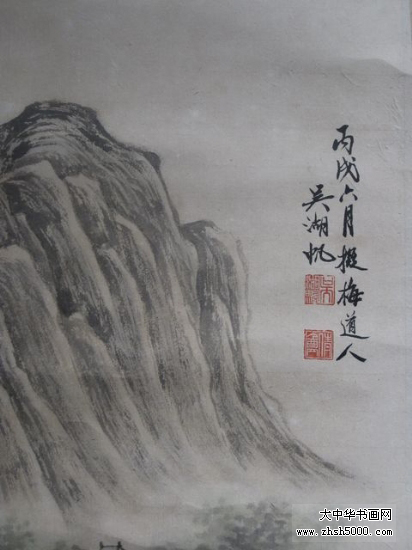 丙戌六月拟梅道人
吴湖帆
大中华书画网
www.zhsh5000.com